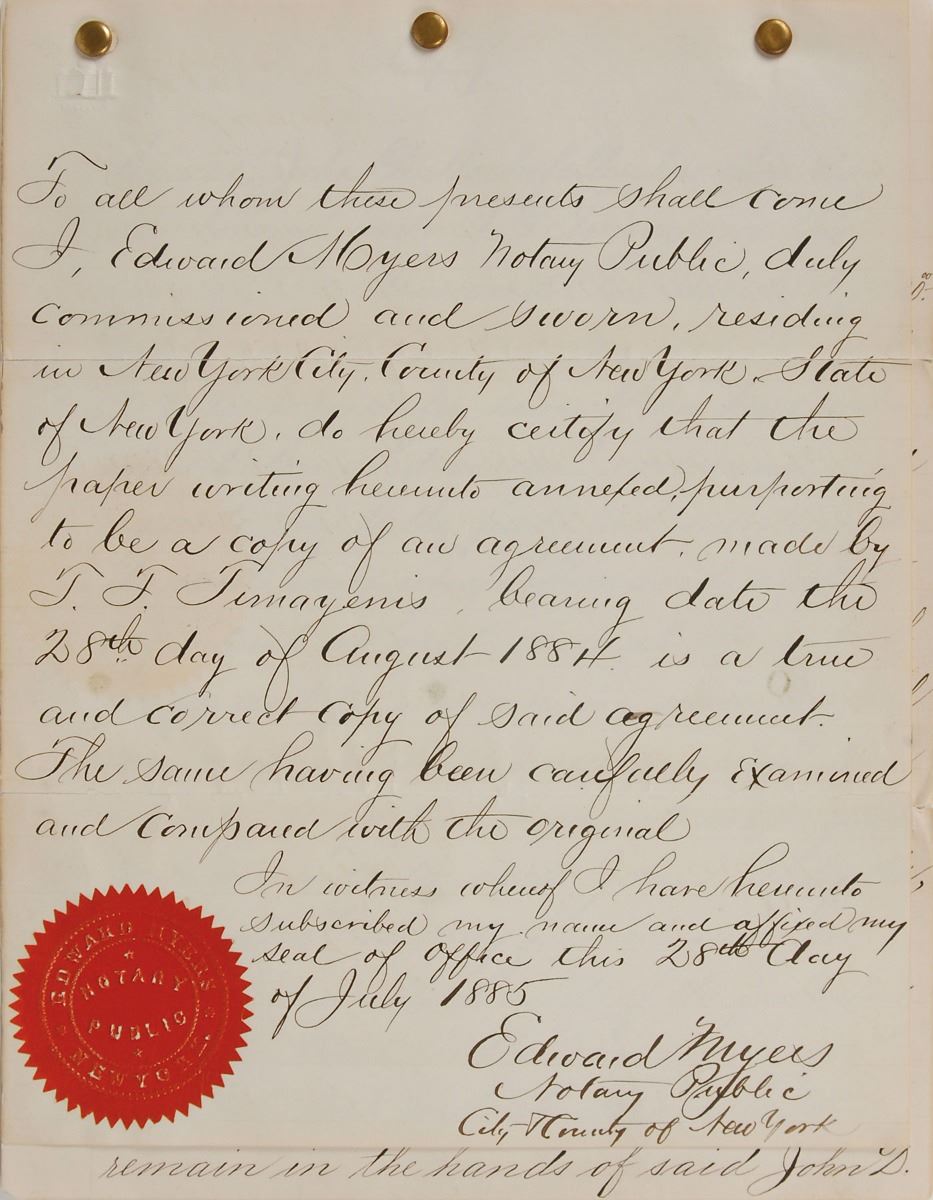 To all whom these presents shall come
I, Edward Myers Notary Public, duly
commissioned and sworn, residing
in New York City, County of New York, State
of New York, do hereby certify that the
paper writing hereunto annexed, purporting
to be a copy of an agreement, made by
T. T. Timayenis, bearing date the
28th day of August 1884 is a true
and correct copy of said agreement.
The same having been carefully examined
and compared with the original
In witness whereof I have hereunto
subscribed my name and affixed my
seal of office this 28th day
of July 1885
Edward Myers
Notary Public
City & County of New York
EDWARD MYERS
NOTARY
PUBLIC
NEW YORK
remain in the hands of said John D.